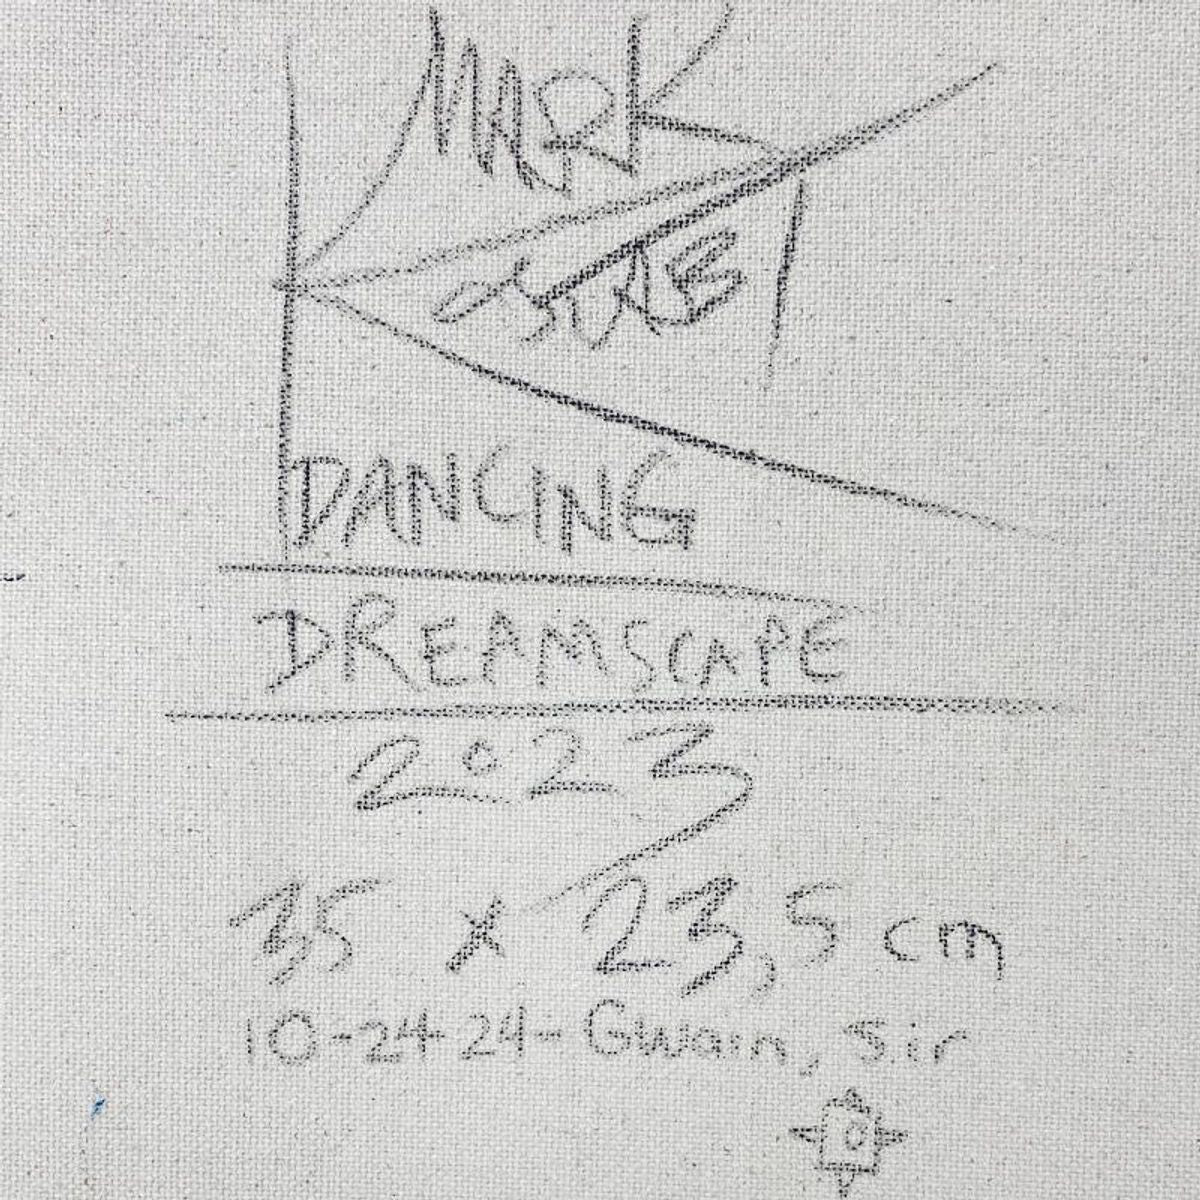 MARK
DANCING
DREAMSCAPE
2023
35 x 23,5 cm
10-24-24-Gwain, Sir